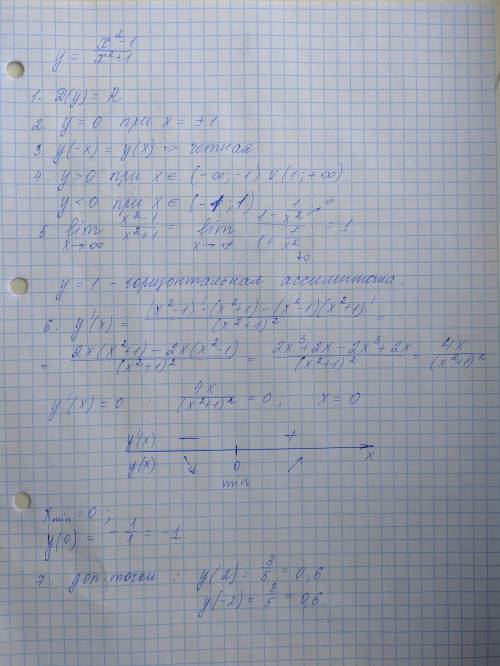 y = (x² - 1)/(x² + 1)
1. D(y) = R
2. y = 0 при x = ±1
3. y(-x) = y(x) => четная.
4. y > 0 при x ∈ (-∞; -1) ∪ (1; +∞)
y < 0 при x ∈ (-1; 1)
5. lim x→∞ (x² - 1)/(x² + 1) = lim x→∞ (1 - 1/x² → 0)/(1 + 1/x² → 0) = 1
y = 1 - горизонтальная ассимптота.
6. y'(x) = ((x² - 1)' · (x² + 1) - (x² - 1)(x² + 1)')/(x² + 1)² =
= (2x(x² + 1) - 2x(x² - 1))/(x² + 1)² = (2x³ + 2x - 2x³ + 2x)/(x² + 1)² = 4x/(x² + 1)²
y'(x) = 0 : 4x/(x² + 1)² = 0, x = 0
y'(x) — +
y(x) ↘ 0 ↗ x
min
x min = 0 ;
y(0) = -1/1 = -1.
7. доп. точки : y(2) = 3/5 = 0,6
y(-2) = 3/5 = 0,6